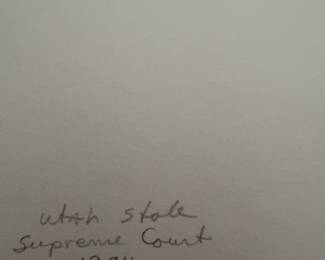 Utah State
Supreme Court